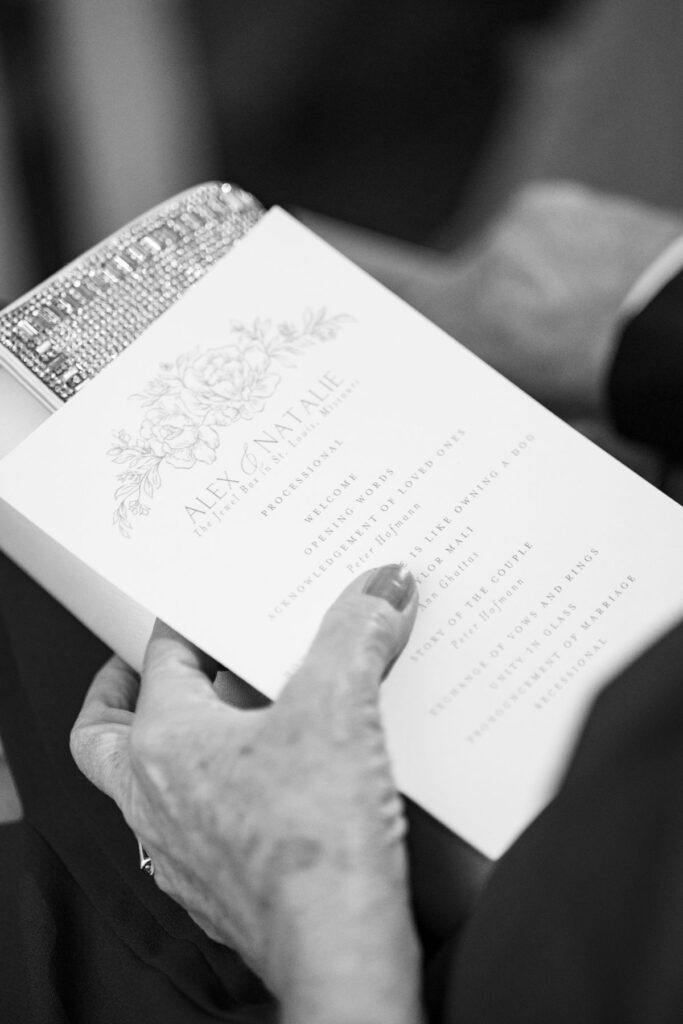 ALEX & NATALIE
The Jewel Box in St. Louis, Missouri
PROCESSIONAL
WELCOME
OPENING WORDS
ACKNOWLEDGEMENT OF LOVED ONES
Peter Hofmann
IS LIKE OWNING A DOG
LOR MALI
Ann Ghallas
STORY OF THE COUPLE
Peter Hofmann
EXCHANGE OF VOWS AND RINGS
UNITY IN GLASS
PRONOUNCEMENT OF MARRIAGE
RECESSIONAL